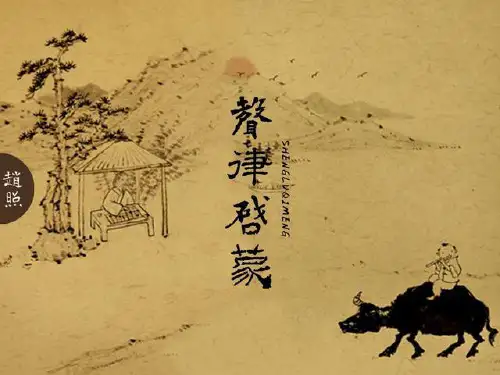 聲律啓蒙
SHENGLVQIMENG
趙照